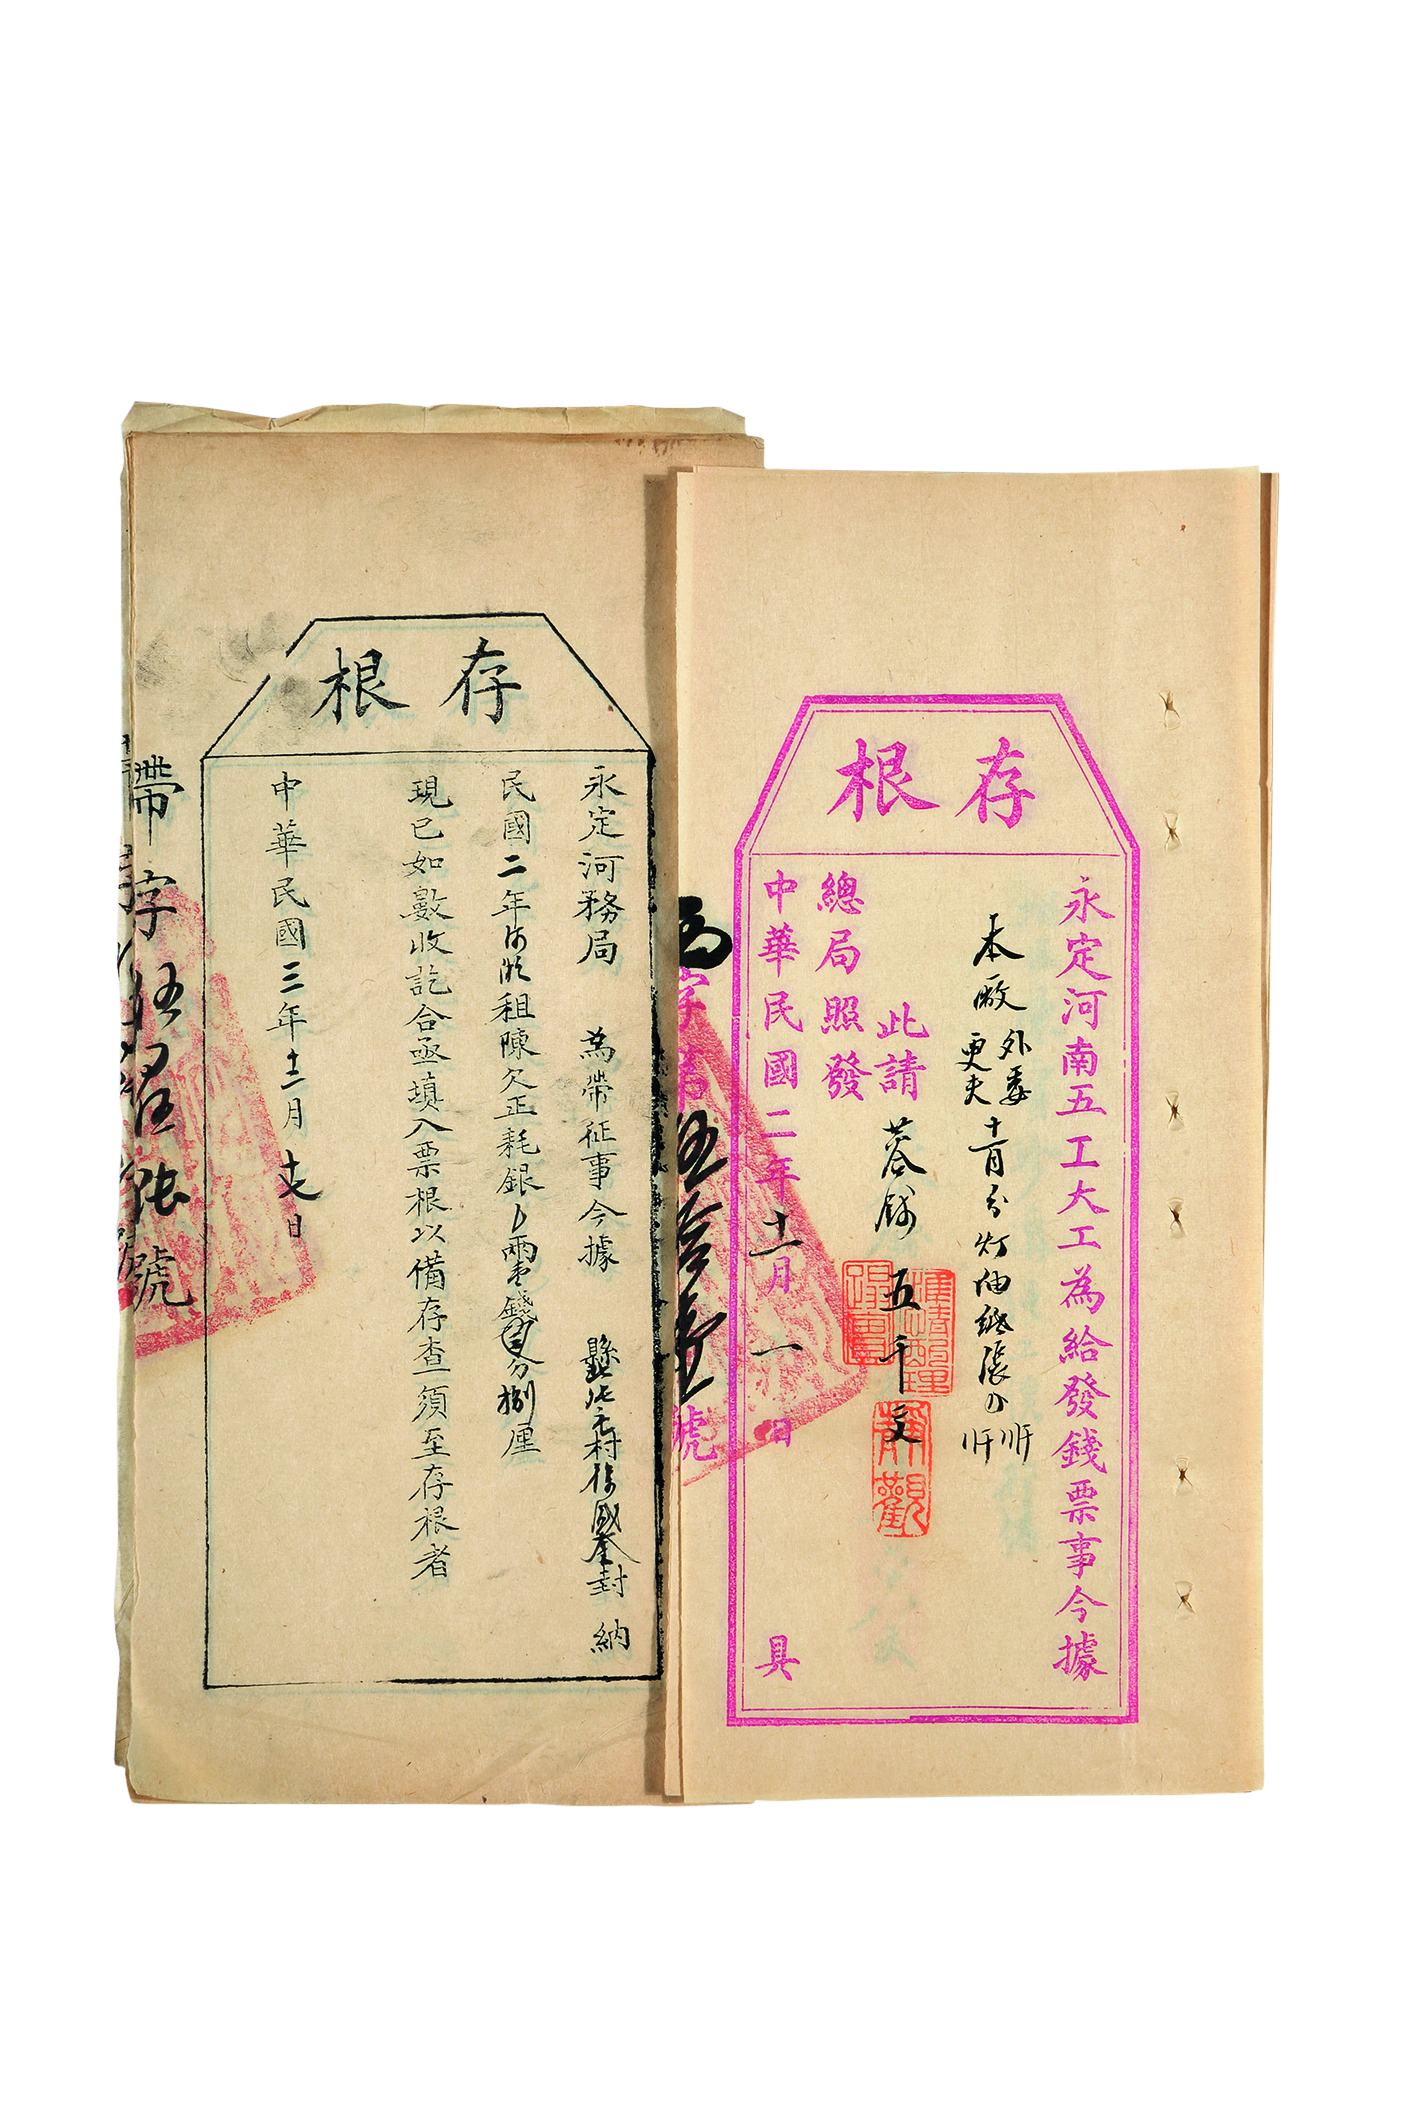 存根
永定河南五工大工為給發錢票事今據
本廠外委更夫十一月分灯油紙張
此請 蓉錢五千文
總局照發
中華民國二年十一月一日 具
字第伍拾壹號
存根
永定河務局 為帶征事今據 縣 村 國奎封納
民國二年 租陳欠正耗銀 兩 錢 分捌厘
現已如數收訖合亟填入票根以備存查須至存根者
中華民國三年十二月 日
帶字 號